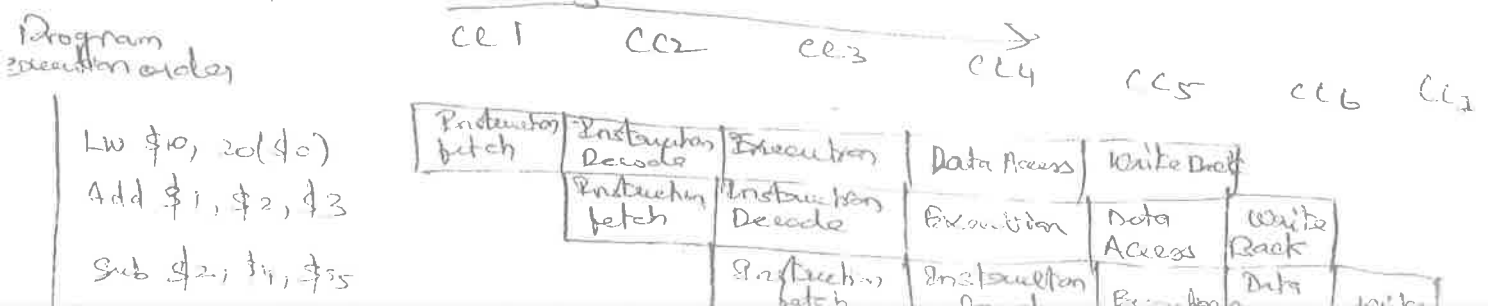 Program
execution order
CC1 CC2 CC3 CC4 CC5 CC6
LW $10, 20($0)
Instruction fetch Instruction Decode Execution Data Access Write Back
Add $1, $2, $3
Instruction fetch Instruction Decode Execution Data Access Write Back
Sub $2, $4, $55
Instruction fetch Instruction Execution Data